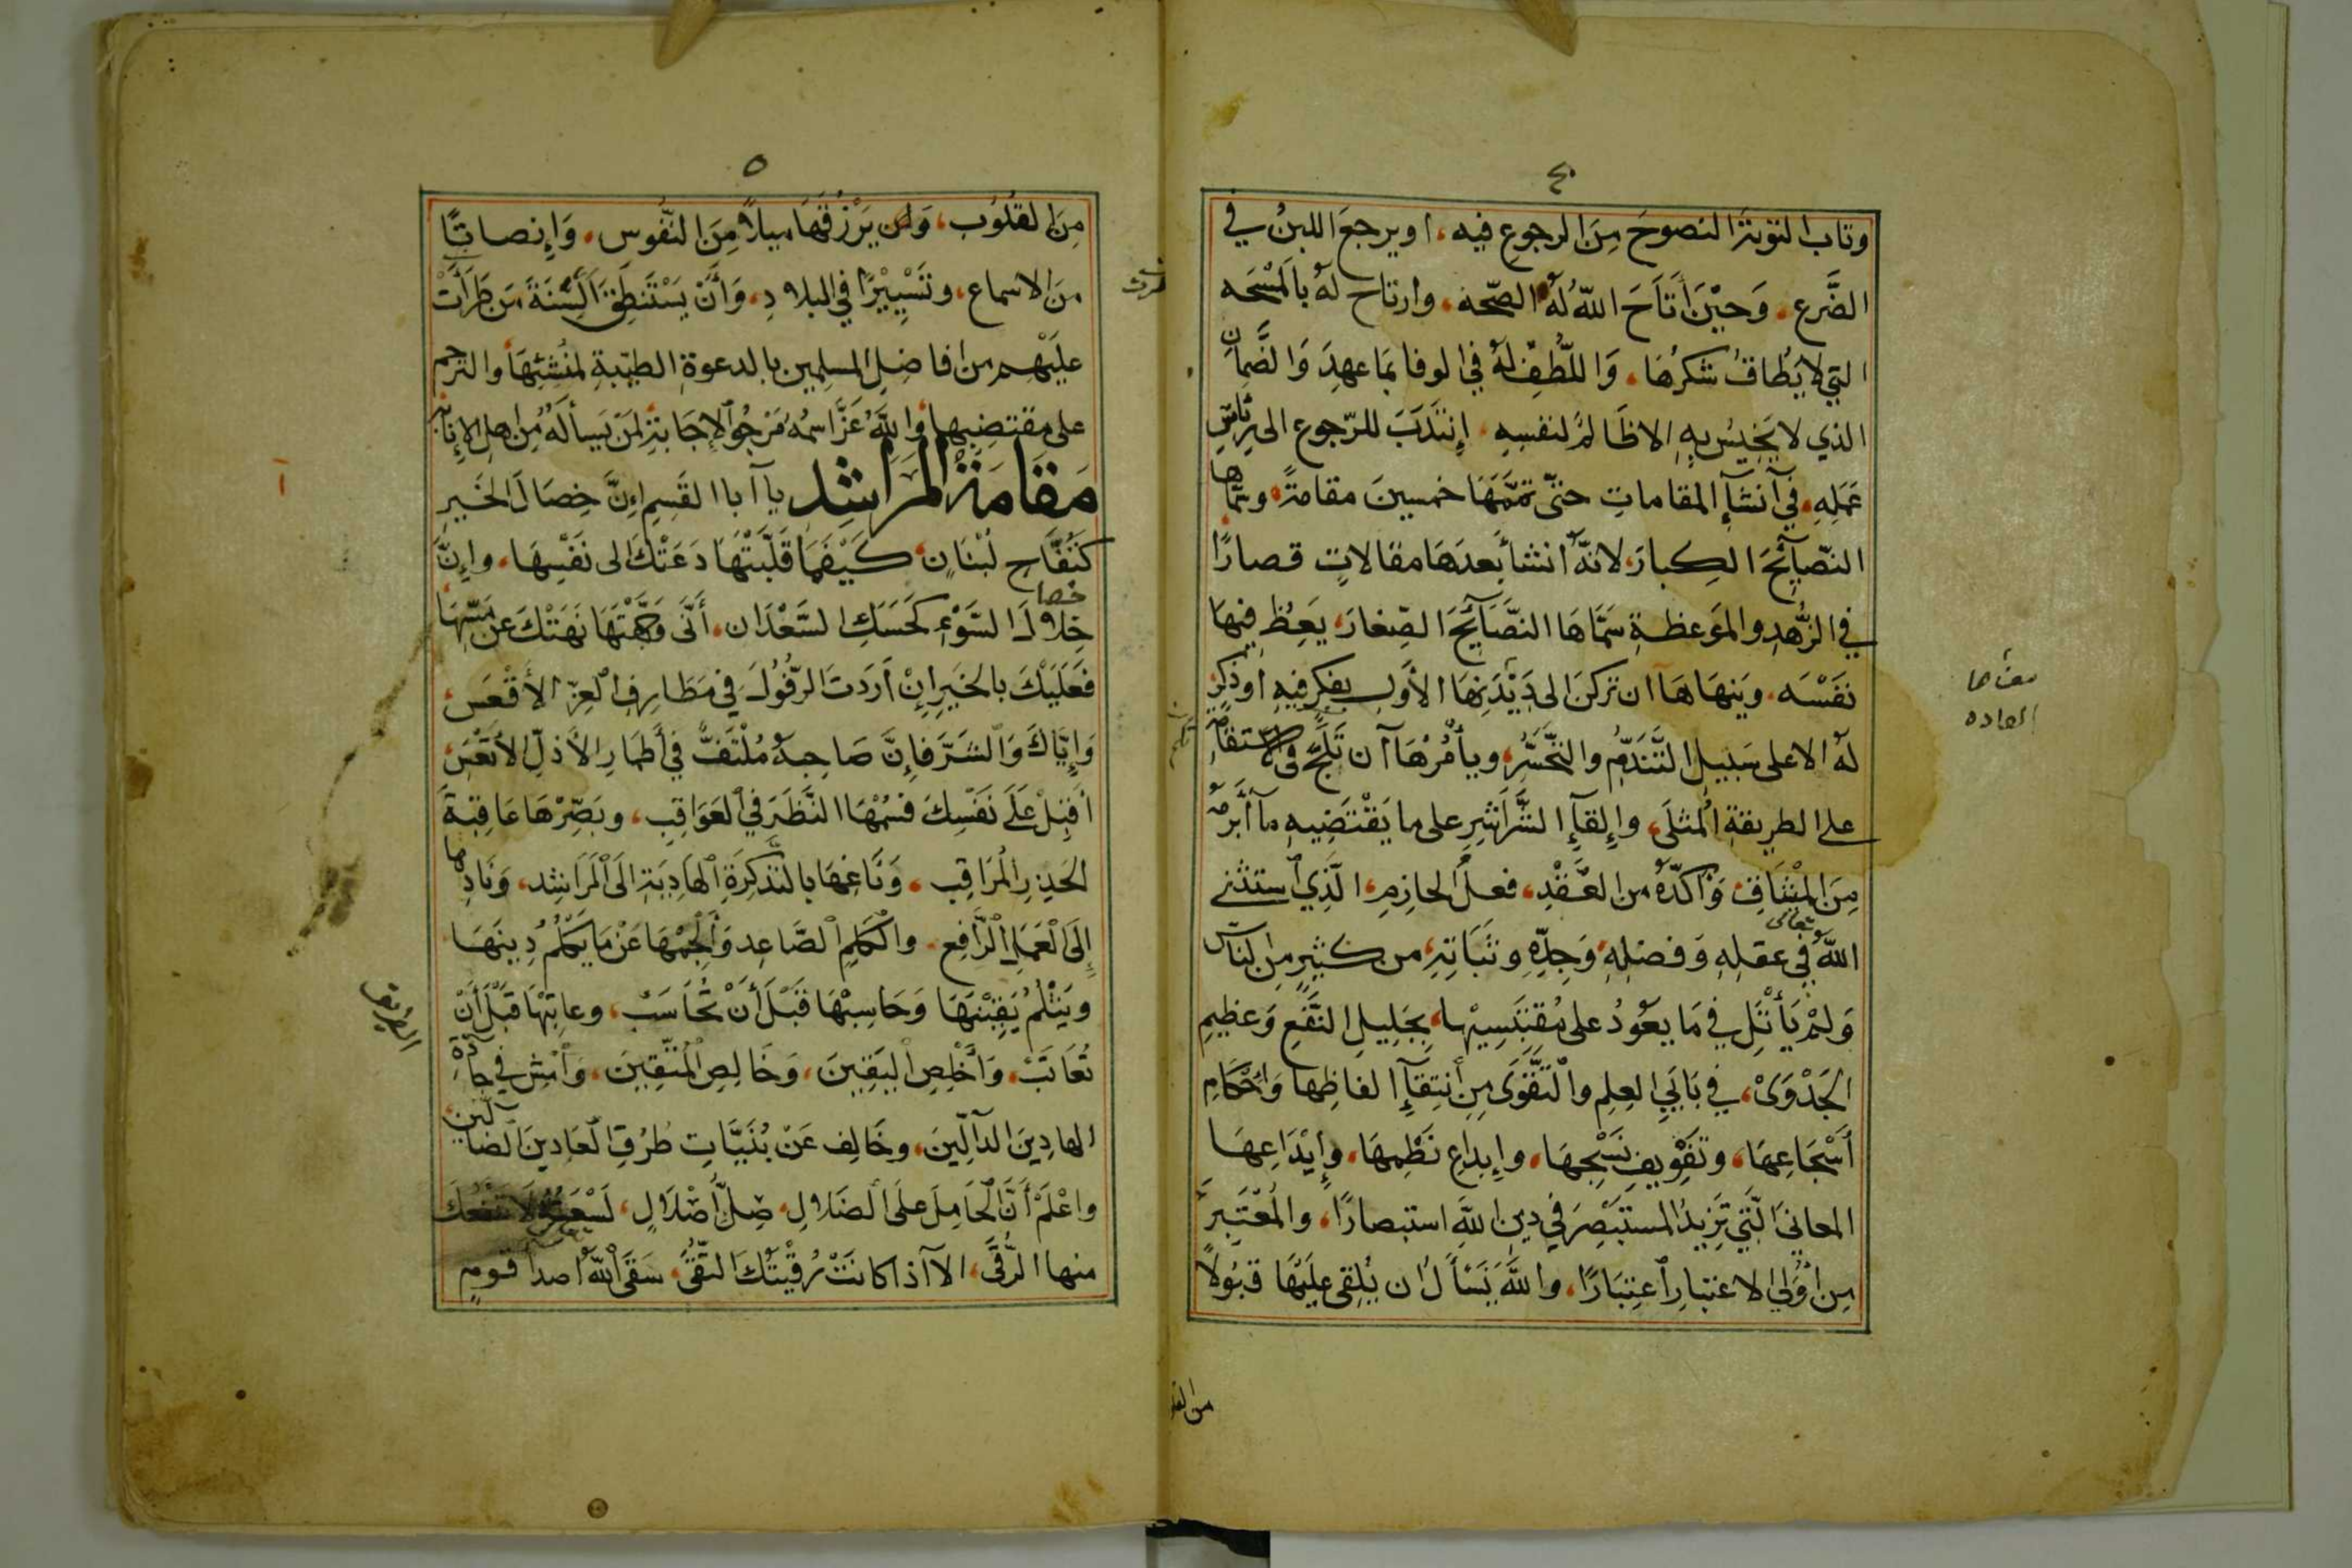 ٤
وتاب التوبَةَ النصوحَ مِنَ الرجوعِ فيه، اويرجعَ اللبنُ في
الضَّرع، وَحيْنَ أَتَاحَ اللّهُ لَهُ الصّحه، وارتاح لَهُ بالمَسْحَه
التي لا يُطاقُ شكرُهَا، وَاللُّطِفِ لهُ في الوفا بمَا عهِدَ وَالضَّمانِ
الذي لا يَخِيسُ بِهِ الا ظَالمٌ لنفسِهِ إنتَدَبَ للرّجوع الى رئاسِ
عَمَلِهِ، في آنشآءِ المقاماتِ حتّى تممَّهَا خمسينَ مقامةً، وسمّاها
النّصَآئحَ الكِبارَ، لانهُّ انشا بَعدَهَا مقالاتٍ قصارًا
في الزُّهدِ والمَوعظةِ سَمَّاهَا النصَّآئحَ الصِّغارَ، يَعِظُ فيهَا
نفَسَه، ويَنهَاهَا آن تركنَ الى دَيْدَنِهَا الأوّلِ بفكرٍ فيهِ اوذكرٍ
لهُ الا على سَبيلِ التَّندّمِ والتحَسُّرِ، ويأمُرُهَا آن تَلِجَّ فى الاستقامة
على الطريقةِ المُثلَى، وإلقآءِ الشَّراشِرِ على ما يَقْتضَيهِ مآ أبرَمَهُ
مِنَ المِيْثَاقِ وَاكدّهُ من العَقْدِ، فعلُ الحازمِ، الّذي استثنى
اللّهُ تعالى في عقلِهِ وَفضلِهِ، وَجِدّهِ وثَبَاتِهِ، من كثيرٍ من الناس
وَلمْ يَأْتَلِ في مَا يعُودُ على مُقتَبِسِيْهَا، بجَلِيلِ النّفعِ وَعظيمِ
الجَدْوَىْ، في بَابَيِ العِلمِ والتّقْوَى مِن أنتِقآءِ الفاظِها وَإحْكامِ
أَسْجَاعِهَا، وتفَوِيفِ نَسْجِهَا، وإبداعِ نَظْمِهَا، وإيْدَاعِهَا
المعانىَ الّتي تَزِيدُ المستبْصِرَ في دينِ اللّهِ استبصارًا، والمُعْتَبِرَ
مِن أُولي الاعتبارِ اعتِبَارًا، واللّهَ يَسْأَلُ ان يُلقِي عليَهَا قبُولاً
معناها
العاده
من القلو
٥
مِنَ القلُوب، وَان يَرْزُقهَا ميلاً مِنَ النّفُوسِ، وَإنصاتًا
منَ الاسماع، وتَسْيِيْرًا في البلادِ، وَأَنْ يَسْتَنطِقَ أَلسِنَةَ مَن طَرَأَتْ
عليَهِم من افاضِلِ المسلمِين بالدعوةِ الطيّبةِ لمنُشئِهَا والترحم
على مقتضِبِها، وَاللّهُ عَزَّ اسمُهُ مَرجُو الإجَابةِ لمَنْ يَسألَهُ مِن اهلِ الإنابه
مَقَامَةُ المَرَاشِدِ يا آبا القَسِمِ إنَّ خِصَالَ الخَيرِ
كتَفُّاحِ لُبْنَانٍ كَيْفَمَا قَلّبَتْهَا دَعَتْكَ الى نَفَسِهَا، وإنَّ
خِلاَلَ السَّوْءِ كَحَسَكِ السَّعْدَان، أَنّى وَجَّهْتَهَا نَهَتْكَ عن مَسِّهَا
فعَلَيْكَ بالخيَرِ إنْ أَرَدتَ الرّفُولَ في مَطَارِفِ العِزّ الأَقْعَسِ،
وَإيَّاكَ وَالشَّرَّ فَإنَّ صَاحِبَهُ مُلْتَفٌّ في أَطمَارِ الأَذلّ الأتعَسِ،
أَقبِلْ عَلَى نَفَسِكَ فسُمْهَا النَّظَرَ في العَوَاقِب، وبَصّرْهَا عَاقِبةَ
الحَذِرِ المُرَاقِب، وَنَاغِهَا بالتذَّكِرَةِ الهادِيَةِ الى المَرَاشِد، وَنَادِها
إلَى العْمَلِ الرَّافِع، والكَلِمِ الصَّاعِد وَأَلجِمْهَا عَنْ مَا يَكلُمُ دِينهَا
ويَثْلمُ يَقيِنْهَا وَحَاسِبْهَا قَبْلَ أَنْ تُحَاسَبَ، وعاتِبْهَا قَبْلَ أَنْ
تُعَاتَبْ، وَأَخْلِصِ اليَقِينَ، وَخَالِصِ المُتّقِينَ، وَامْشِ في جآدّةِ
الهادِينَ الدآلّينَ، وخَالِف عَنْ بُنَيَّاتِ طُرُقِ العَادِينَ الضآلّين
واعْلَمْ أَنَّ الحَامِلَ علَى الضَلالِ، صِلُّ أَصْلاَلٍ، لَسْعَتُهُ لاَ تنْفَعُكَ
منها الرُّقَى، الا آذا كانَتْ رُقْيتُكَ التّقَى، سَقَى اللّهُ اصدآ قومٍ
الطريق